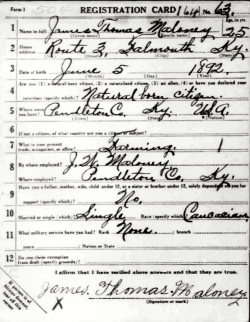 Form 1 REGISTRATION CARD No. 63
1 Name in full James Thomas Maloney Age, in yrs. 25
2 Home address Route 3, Falmouth Ky.
3 Date of birth June 5 1892
4 Are you (1) a natural-born citizen, (2) a naturalized citizen, (3) an alien, (4) or have you declared your
intention (specify which)? Natural born citizen
5 Where were you born? Pendleton Co. Ky. USA
6 If not a citizen, of what country are you a citizen or subject?
7 What is your present trade, occupation, or office? Farming 1
8 By whom employed? J. W. Maloney
Where employed? Pendleton Co. Ky.
9 Have you a father, mother, wife, child under 12, or a sister or brother under 12, solely dependent on you for
support (specify which)? No.
10 Married or single (which)? Single Race (specify which)? Caucasian
11 What military service have you had? Rank None
years Nation or State
12 Do you claim exemption from draft (specify grounds)?
I affirm that I have verified above answers and that they are true.
James Thomas Maloney
X
(Signature or mark)